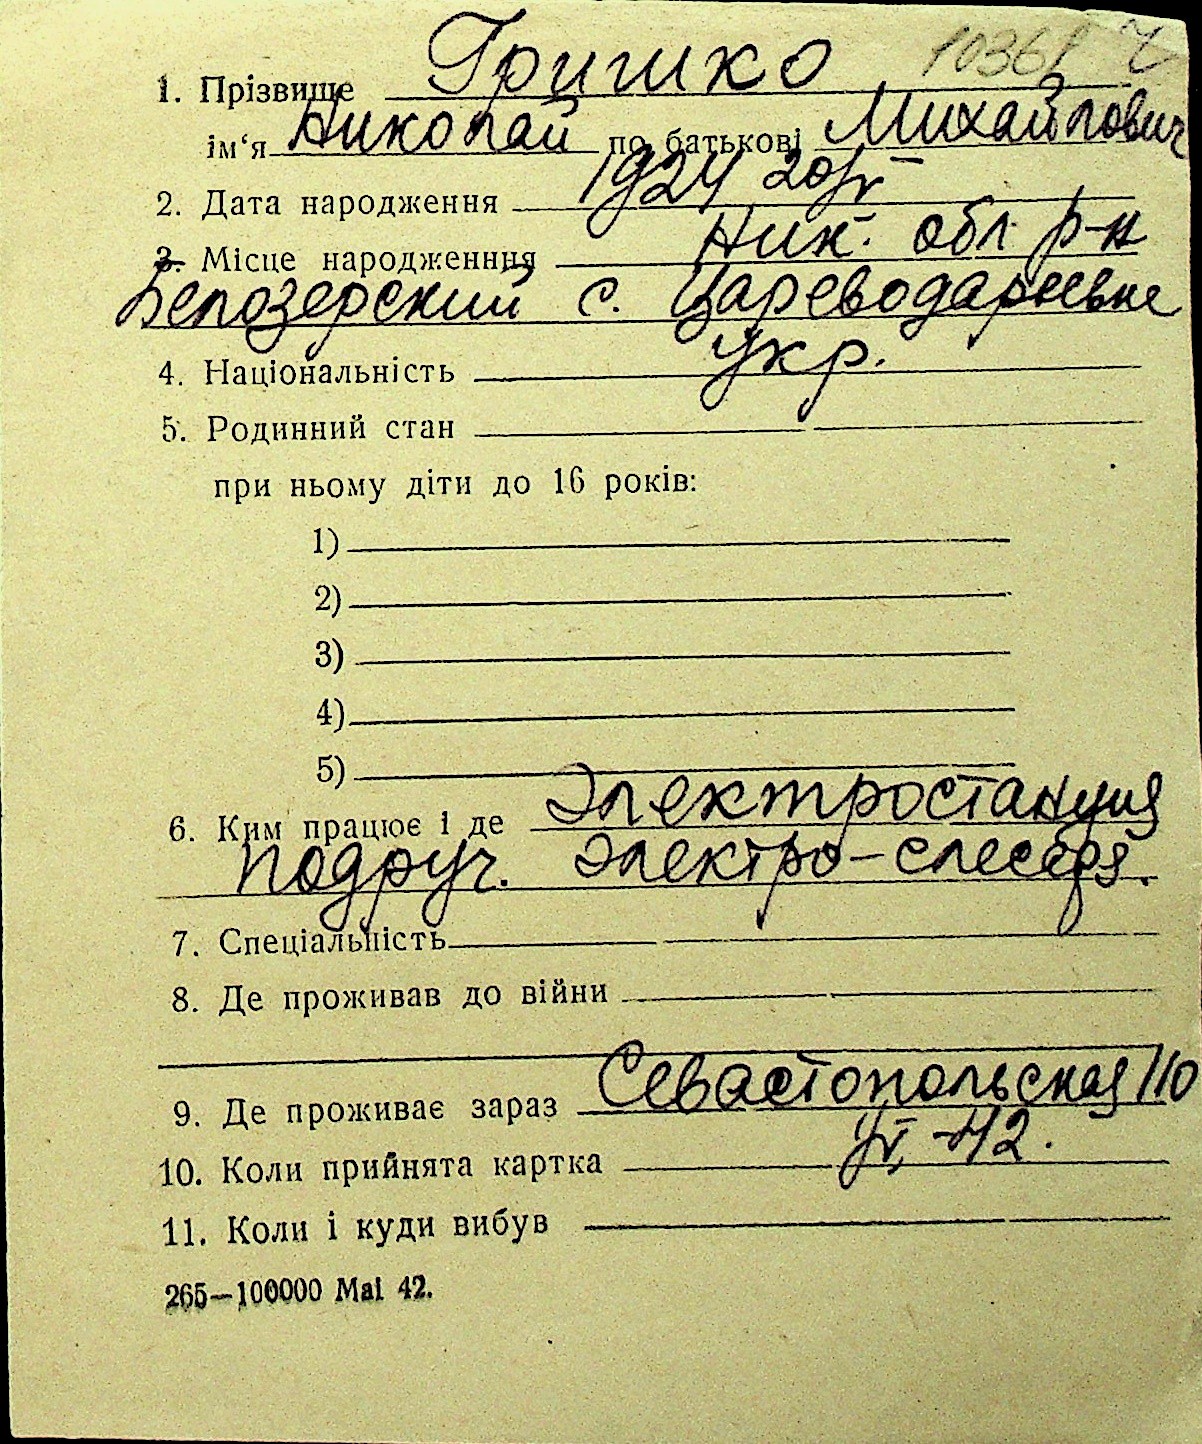 10361 Ч
1. Прізвище Гришко
ім‘я Николай по батькові Михайлович
2. Дата народження 1924 20/V
3. Місце народженння Ник. обл. р-н
Белозерский с. Цареводаровка
4. Національність укр.
5. Родинний стан
при ньому діти до 16 років:
1)
2)
3)
4)
5)
6. Ким працює і де Электростанция
подруч. электро-слесаря.
7. Спеціальність
8. Де проживав до війни
9. Де проживає зараз Севастопольская 110
10. Коли прийнята картка 42.
11. Коли і куди вибув
265—100000 Mai 42.